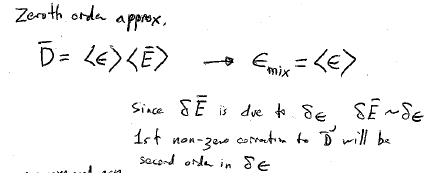 Zeroth order approx.
D̄ = <ϵ><Ē> → ϵ_mix = <ϵ>
Since δĒ is due to δϵ, δĒ ~ δϵ
1st non-zero correction to D̄ will be
second order in δϵ